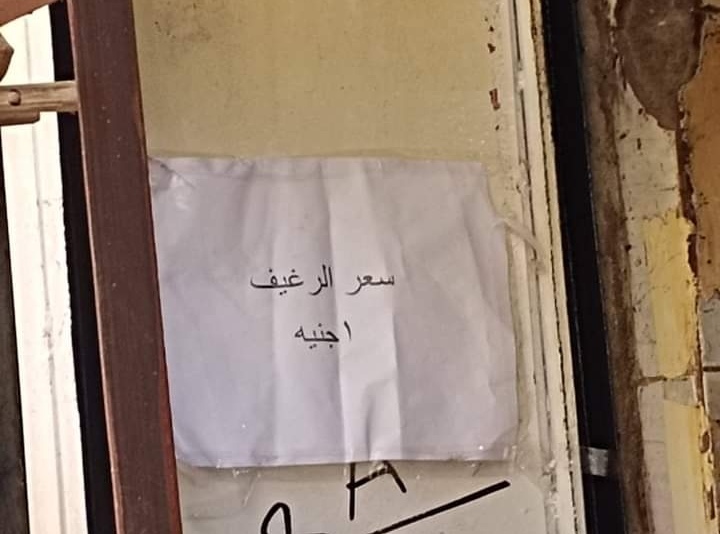 سعر الرغيف
١ جنيه